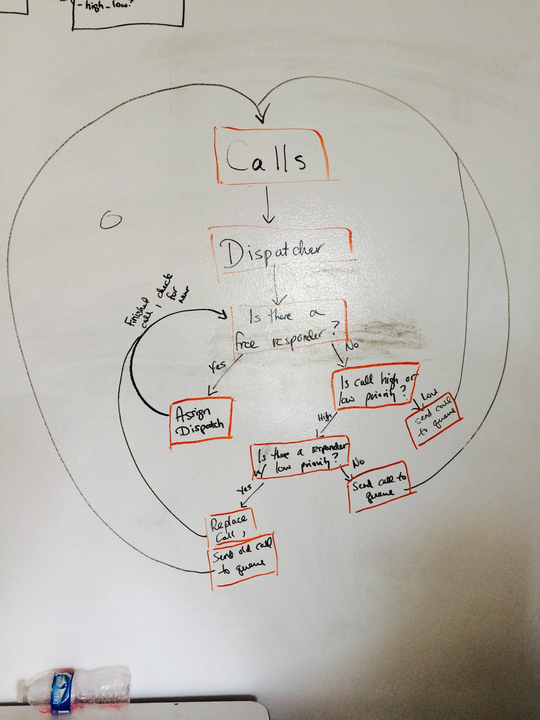 - high-low?
Calls
Dispatcher
Is there a
free responder?
Finished
call, check
for
new
Yes
No
Assign
Dispatch
Is call high or
low priority?
High
Low
Send call
to queue
Is there a responder
w/ low priority?
Yes
No
Send call to
queue
Replace
Call,
Send old call
to queue